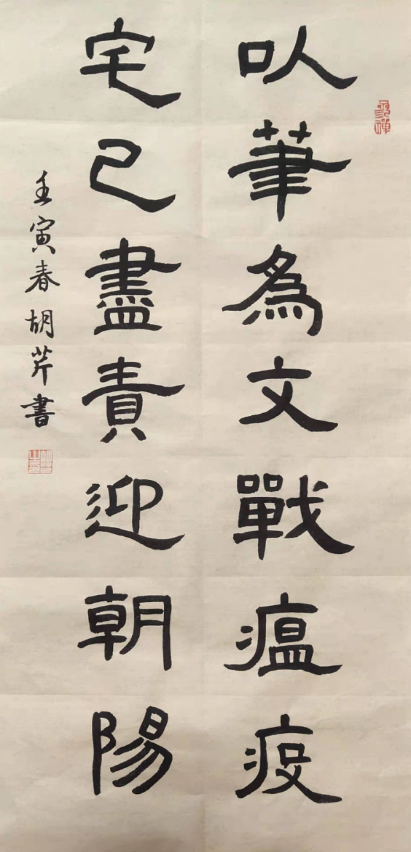 以筆為文戰瘟疫
宅己盡責迎朝陽
壬寅春胡芹書